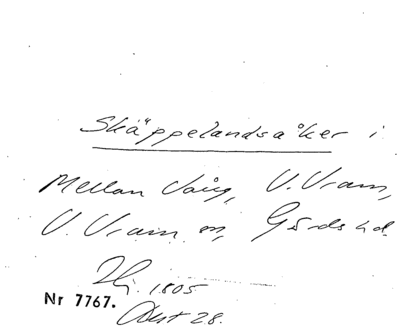 Skäppelandsåker i
Mellan Vång, V. Vram,
V. Vram sn, Gärds hd.
1805
Nr 7767.
Akt 28.